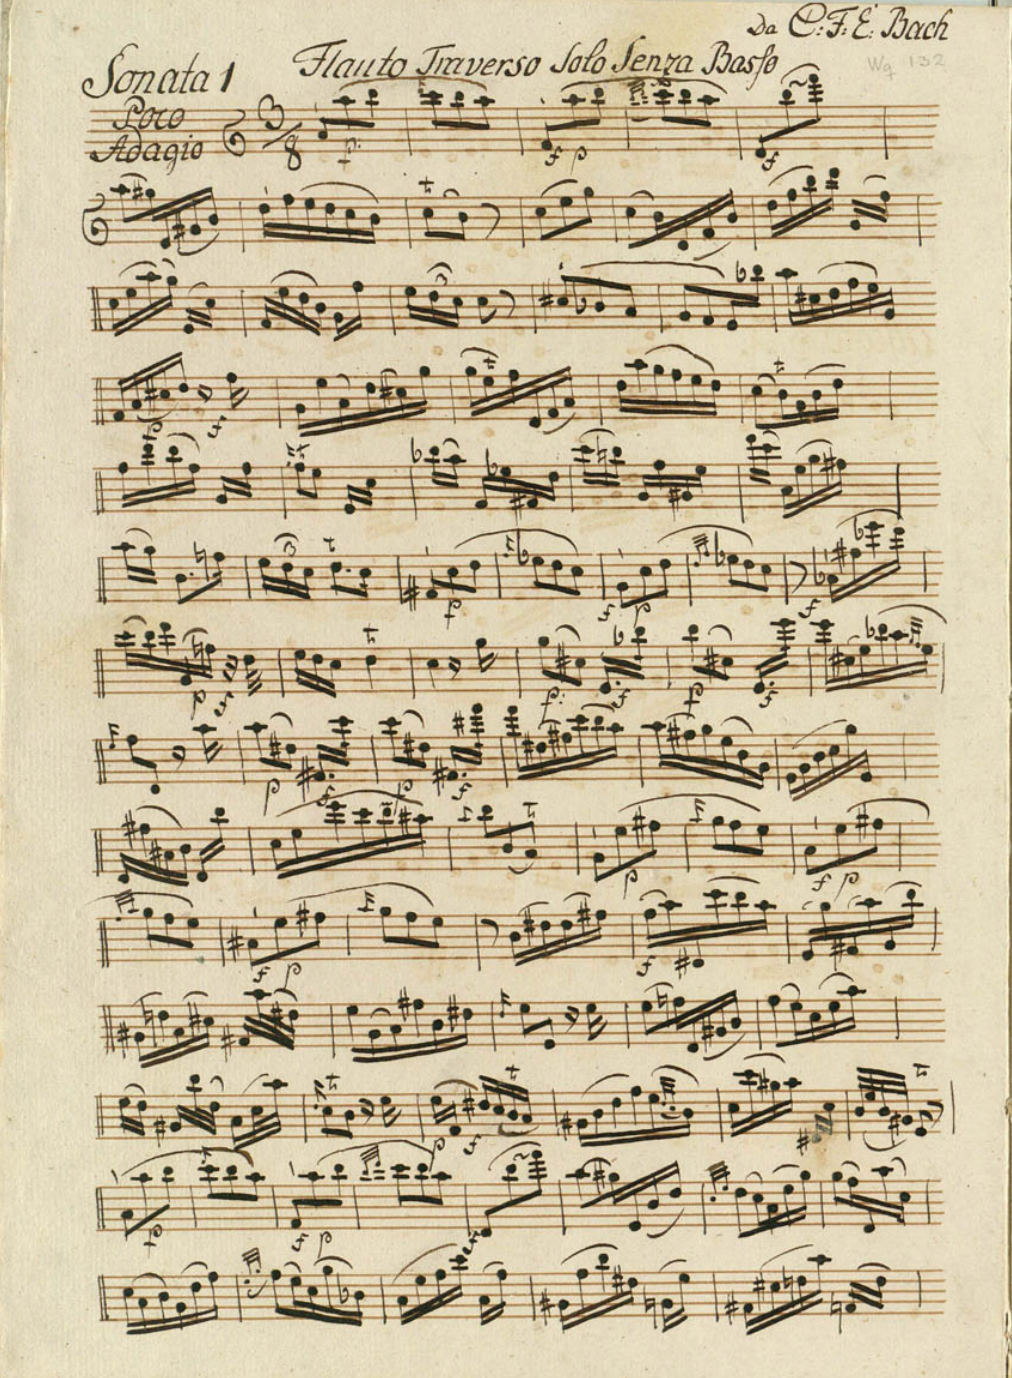 Da C: F: E: Bach
Sonata 1 Flauto Traverso Solo Senza Basso
Wq 132
Poco
Adagio
3/8
p: f p f
p f
p
f p f
p f p: f p f
p f p f
p f p
f p f
p f
p f p f